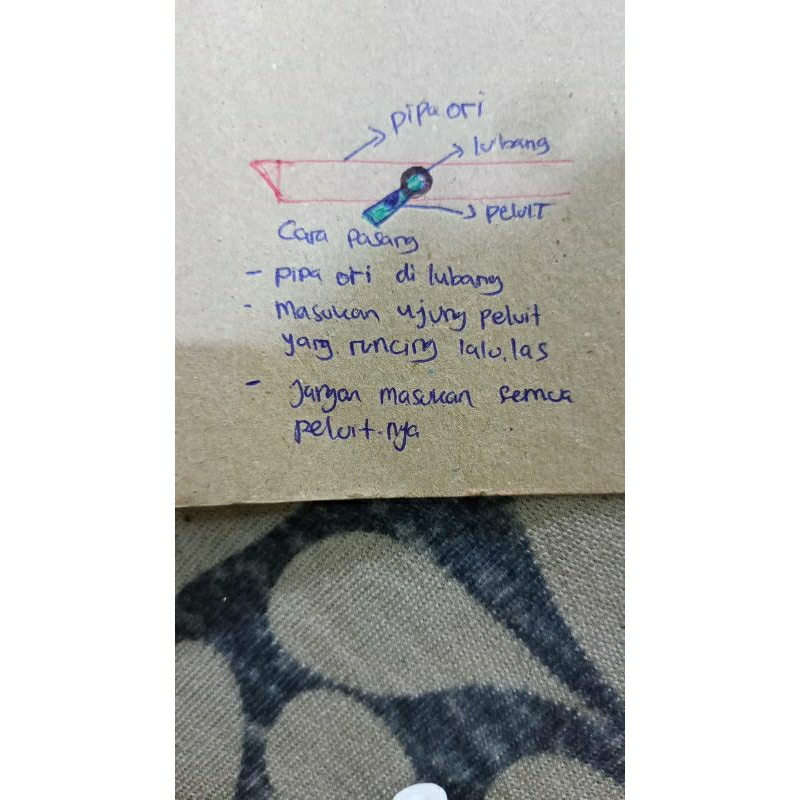 pipa ori
lubang
peluIT
Cara pasang
- pipa ori di lubang
- Masukan ujung peluit
yang runcing lalu.las
- Jangan masukan semua
peluit.nya